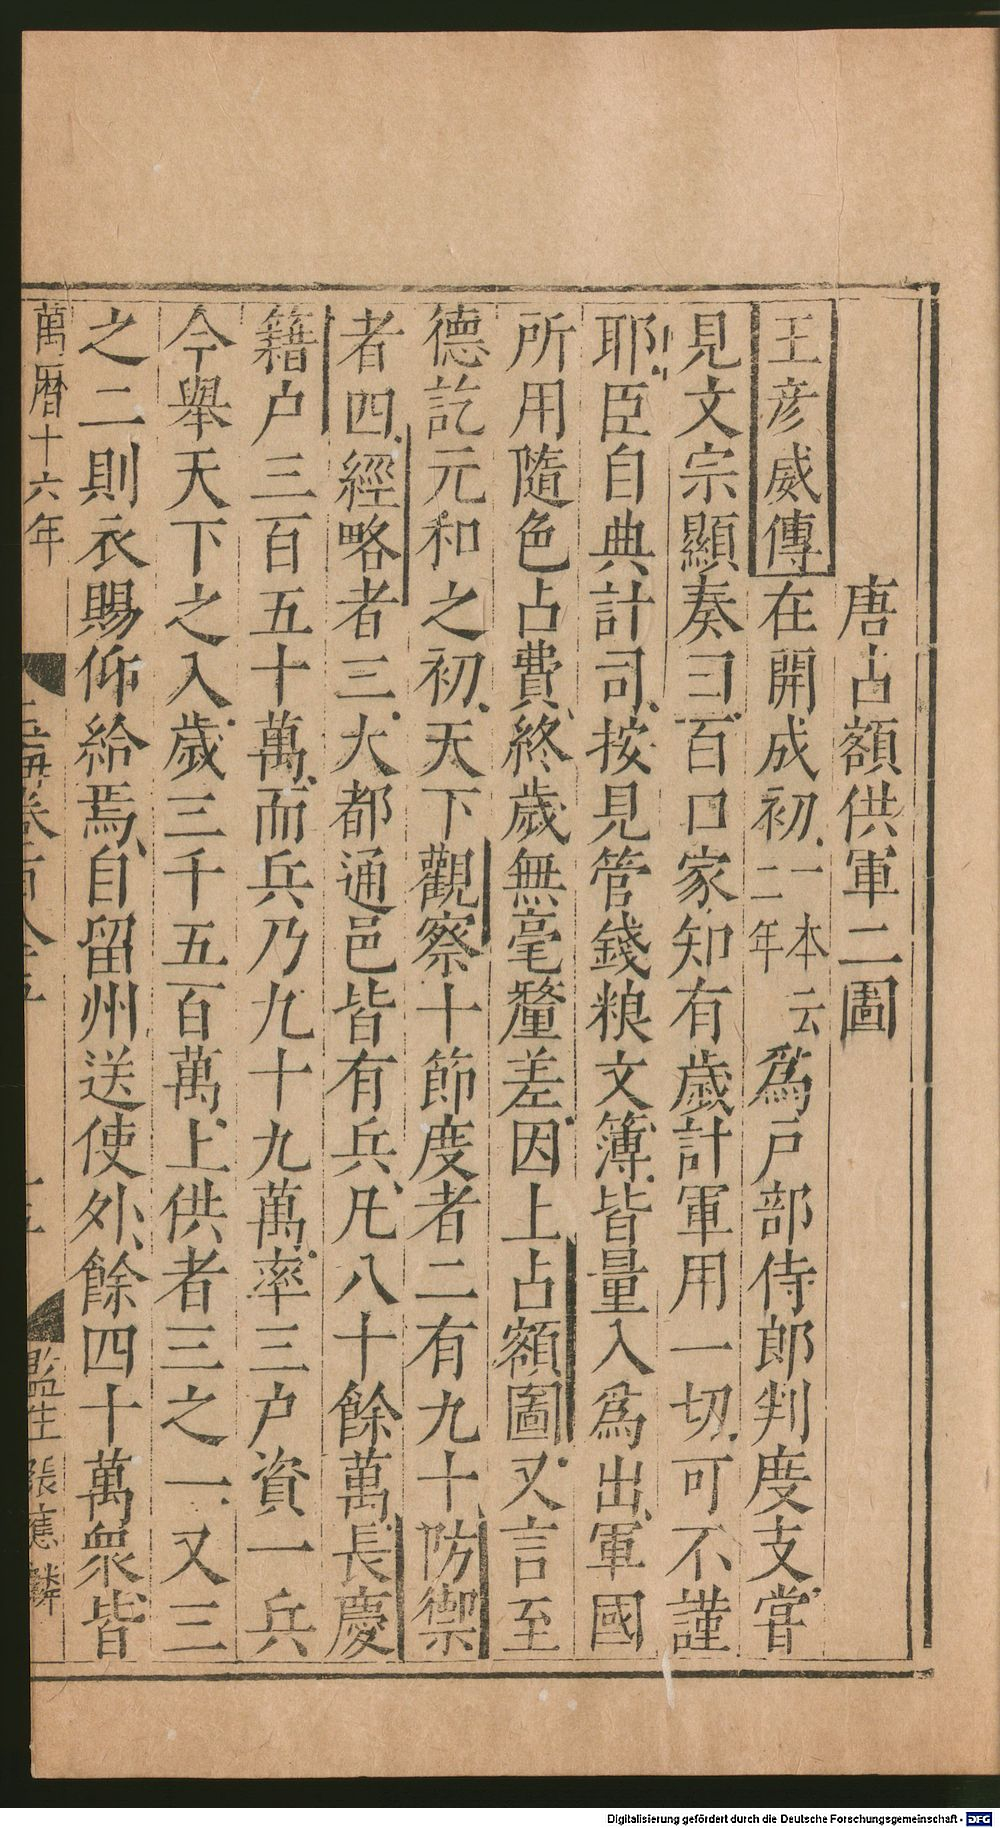 唐占額供軍二圖
王彦威傳在開成初一本云二年爲戸部侍郎判度支嘗
見文宗顯奏曰百口家知有歲計軍用一切可不謹
耶臣自典計司按見管錢粮文簿皆量入爲出軍國
所用隨色占費終歲無毫釐差因上占額圖又言至
德訖元和之初天下觀察十節度者二有九十防禦
者四經略者三大都通邑皆有兵凡八十餘萬長慶
籍户三百五十萬而兵乃九十九萬率三户資一兵
今舉天下之入歲三千五百萬上供者三之一又三
之二則衣賜仰給焉自留州送使外餘四十萬衆皆
萬曆十六年
玉海卷百八十五
十五
監生張應麟
Digitalisierung gefördert durch die Deutsche Forschungsgemeinschaft - DFG